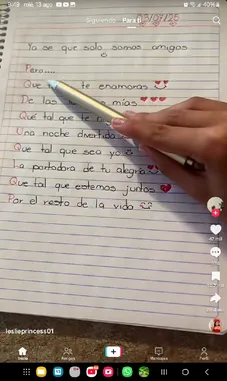 mié, 13 ago
Siguiendo Para ti
03/07/25
Ya se que solo somos amigos
Pero....
Que te enamoras
De las mías
Qué tal que te
Una noche divertida
Que tal que sea yo
La portadora de tu alegría
Que tal que estemos juntos
Por el resto de la vida
leslieprincess01
Inicio
Perfil